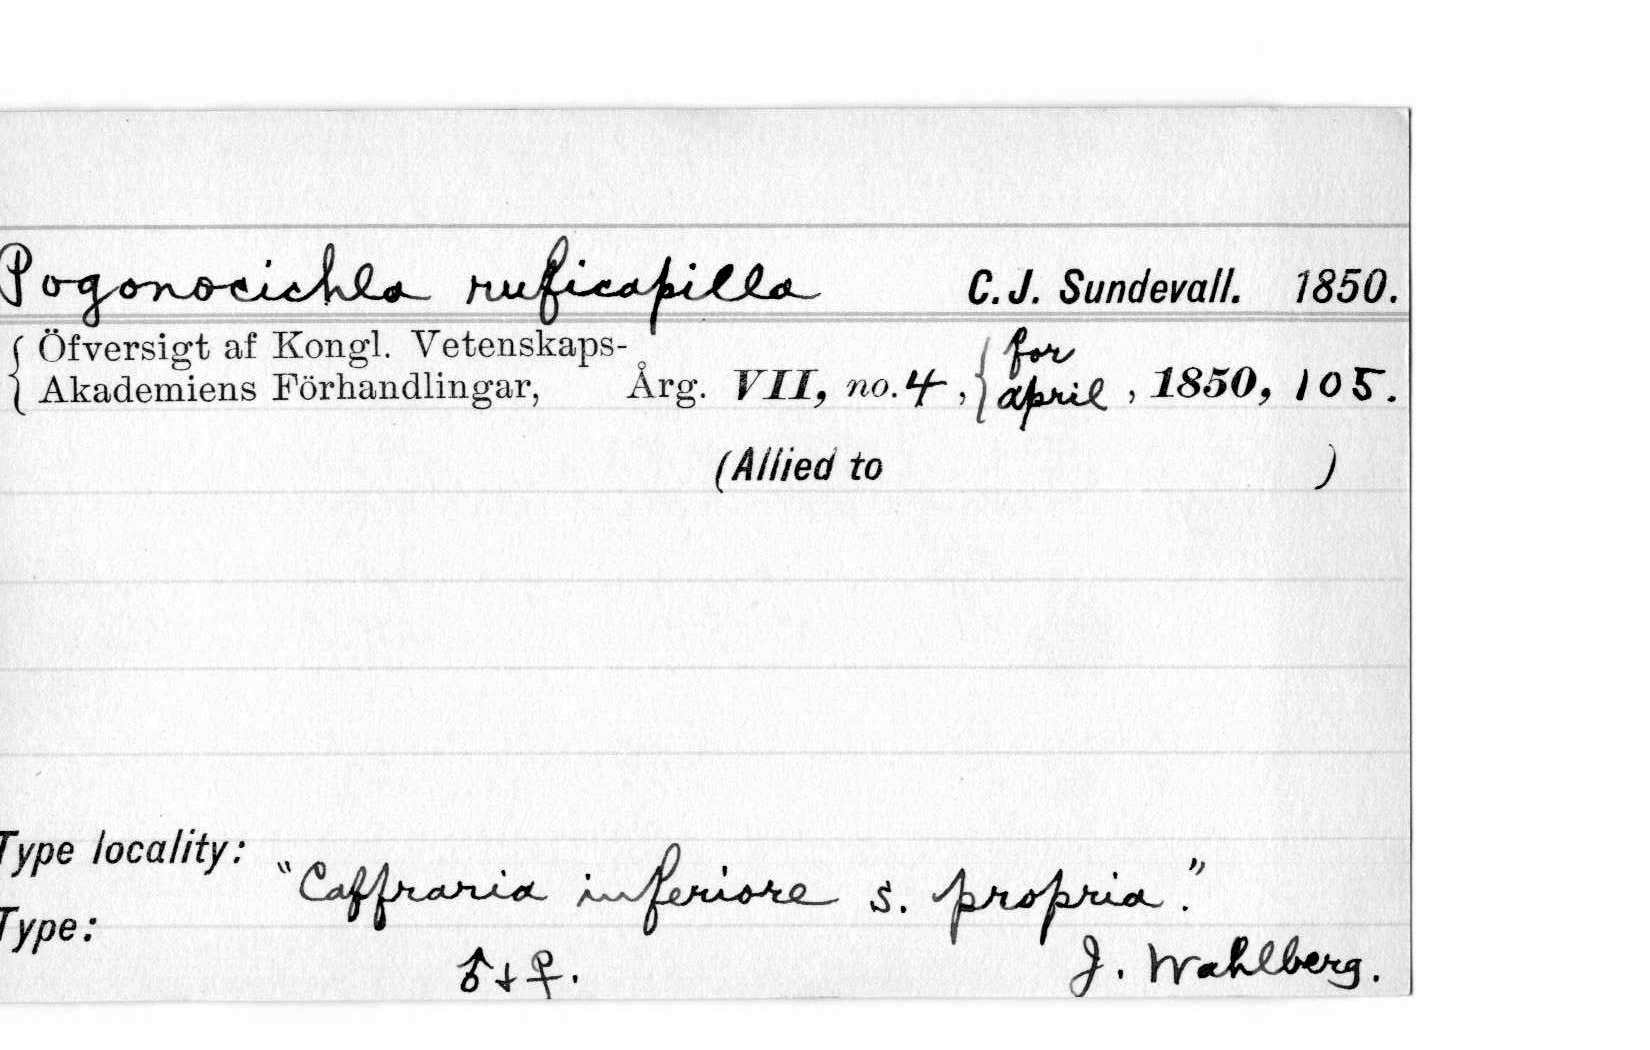 Pogonocichla ruficapilla C. J. Sundevall. 1850.
{ Öfversigt af Kongl. Vetenskaps-
Akademiens Förhandlingar, Årg. VII, no. 4, { for
april, 1850, 105.
(Allied to )
Type locality:
"Caffraria inferiore s. propria."
Type:
♂ + ♀. J. Wahlberg.